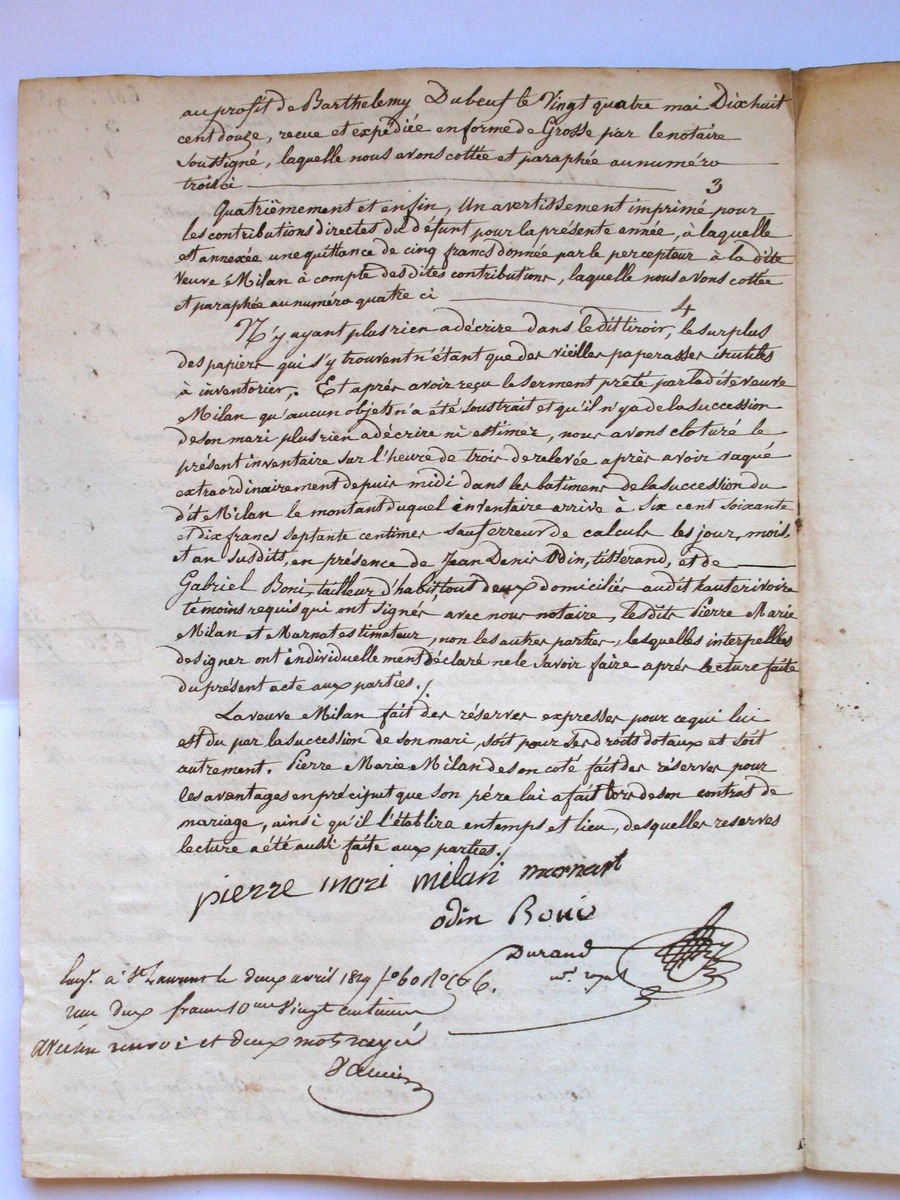 au profit de Barthelemy Dubeuf le Vingt quatre mai Dix huit
cent douze, recue et expédiée en forme de Grosse par le notaire
Soussigné, laquelle nous avons cottée et paraphée au numéro
trois ci 3
Quatrièmement et enfin, Un avertissement imprimé pour
les contributions directes du défunt pour la présente année, à laquelle
est annexée une quittance de cinq francs donnée par le percepteur à la dite
Veuve Milan à compte des dites contributions, laquelle nous avons cottée
et paraphée au numéro quatre ci 4
N'y ayant plus rien a décrire dans le dit tiroir, le surplus
des papiers qui s'y trouvent n'étant que des vieilles paperasses inutiles
à inventorier, Et après avoir reçu le serment prêté par la dite veuve
Milan qu'aucun objets n'a été soustrait et qu'il n'y a de la succession
de son mari plus rien a décrire ni estimer, nous avons cloturé le
présent inventaire sur l'heure de trois de relevée après avoir vaqué
extraordinairement depuis midi dans les batimens de la succession du
dit Milan le montant duquel inventaire arrive à Six cent soixante
et dix francs septante centimes sauf erreur de calculs les jour, mois,
et an susdits, en présence de Jean Denis Odin, tisserand, et de
Gabriel Boni, tailleur d'habit tout deux domiciliés au dit hauterivoire
témoins requis qui ont signés avec nous notaire, les dits Pierre Marie
Milan et Marnat estimateur, non les autres parties, lesquelles interpellées
de signer ont individuellement déclaré ne le savoir faire après lecture faite
du présent acte aux parties./
La veuve Milan fait des réserves expresses pour ce qui lui
est du par la succession de son mari, soit pour ses droits dotaux et soit
autrement. Pierre Marie Milan de son coté fait des réserves pour
les avantages en préciput que son père lui a fait lors de son contrat de
mariage, ainsi qu'il l'établira en temps et lieu, desquelles reserves
lecture a été aussi faite aux parties./
pierre mari milan marnat
odin Boni
Durand
not. royal
Enr. à St Laurent le deux avril 1829 fo 60 Ro Cse 6.
reçu deux francs 10me Vingt centimes
avec un renvoi et deux mots rayés